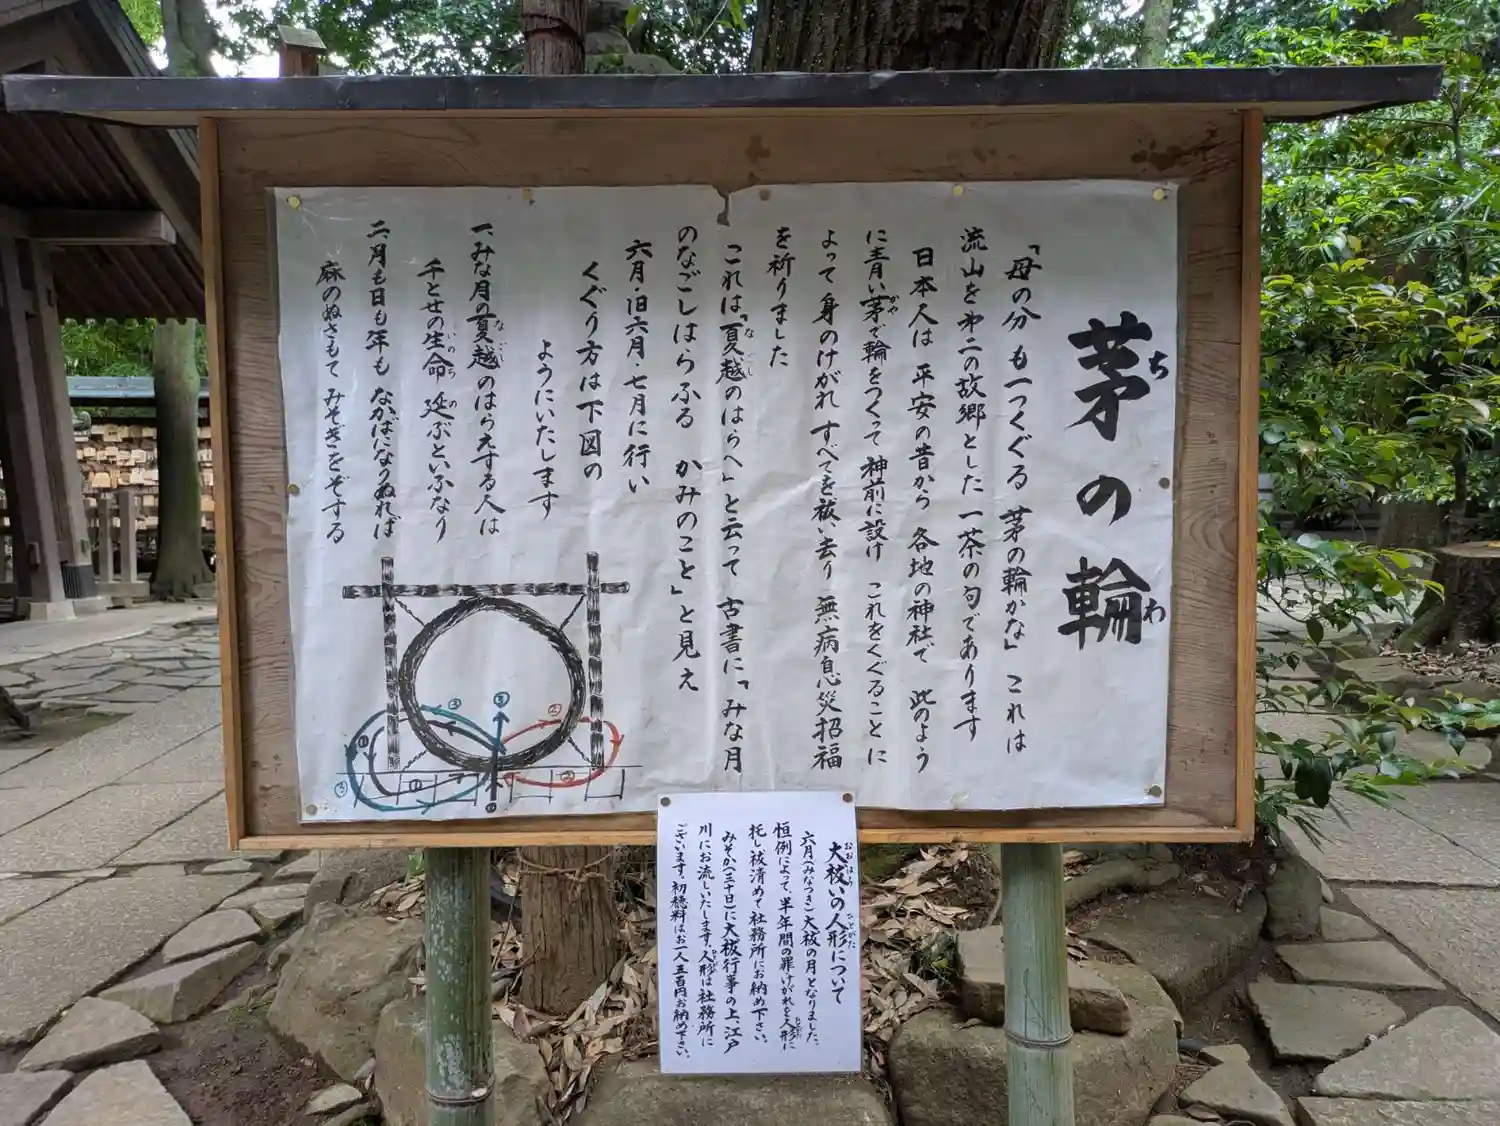 茅の輪
ち
わ
「母の分も一つくぐる 茅の輪かな」 これは
流山を第二の故郷とした 一茶の句であります
日本人は 平安の昔から 各地の神社で 此のよう
に青い茅で輪をつくって 神前に設け これをくぐることに
かや
よって 身のけがれ すべてを祓い去り 無病息災招福
を祈りました
これは「夏越のはらへ」と云って 古書に「みな月
なごし
のなごしはらふる かみのこと」と見え
六月・旧六月・七月に行い
くぐり方は下図の
ようにいたします
一、みな月の夏越のはらえする人は
なごし
千とせの生命 延ぶといふなり
いのち の
二、月も日も年も ながばになりぬれば
麻のぬさもて みそぎをぞする
① ① ① ② ② ③ ③ ③
大祓いの人形について
おおはり ひとがた
六月(みなつき)大祓の月となりました。
恒例によって、半年間の罪けがれを人形に
托し祓清めて社務所にお納め下さい。
みそか(三十日)に大祓行事の上、江戸
川にお流しいたします。人形は社務所に
ございます。初穂料はお一人五百円お納め下さい。